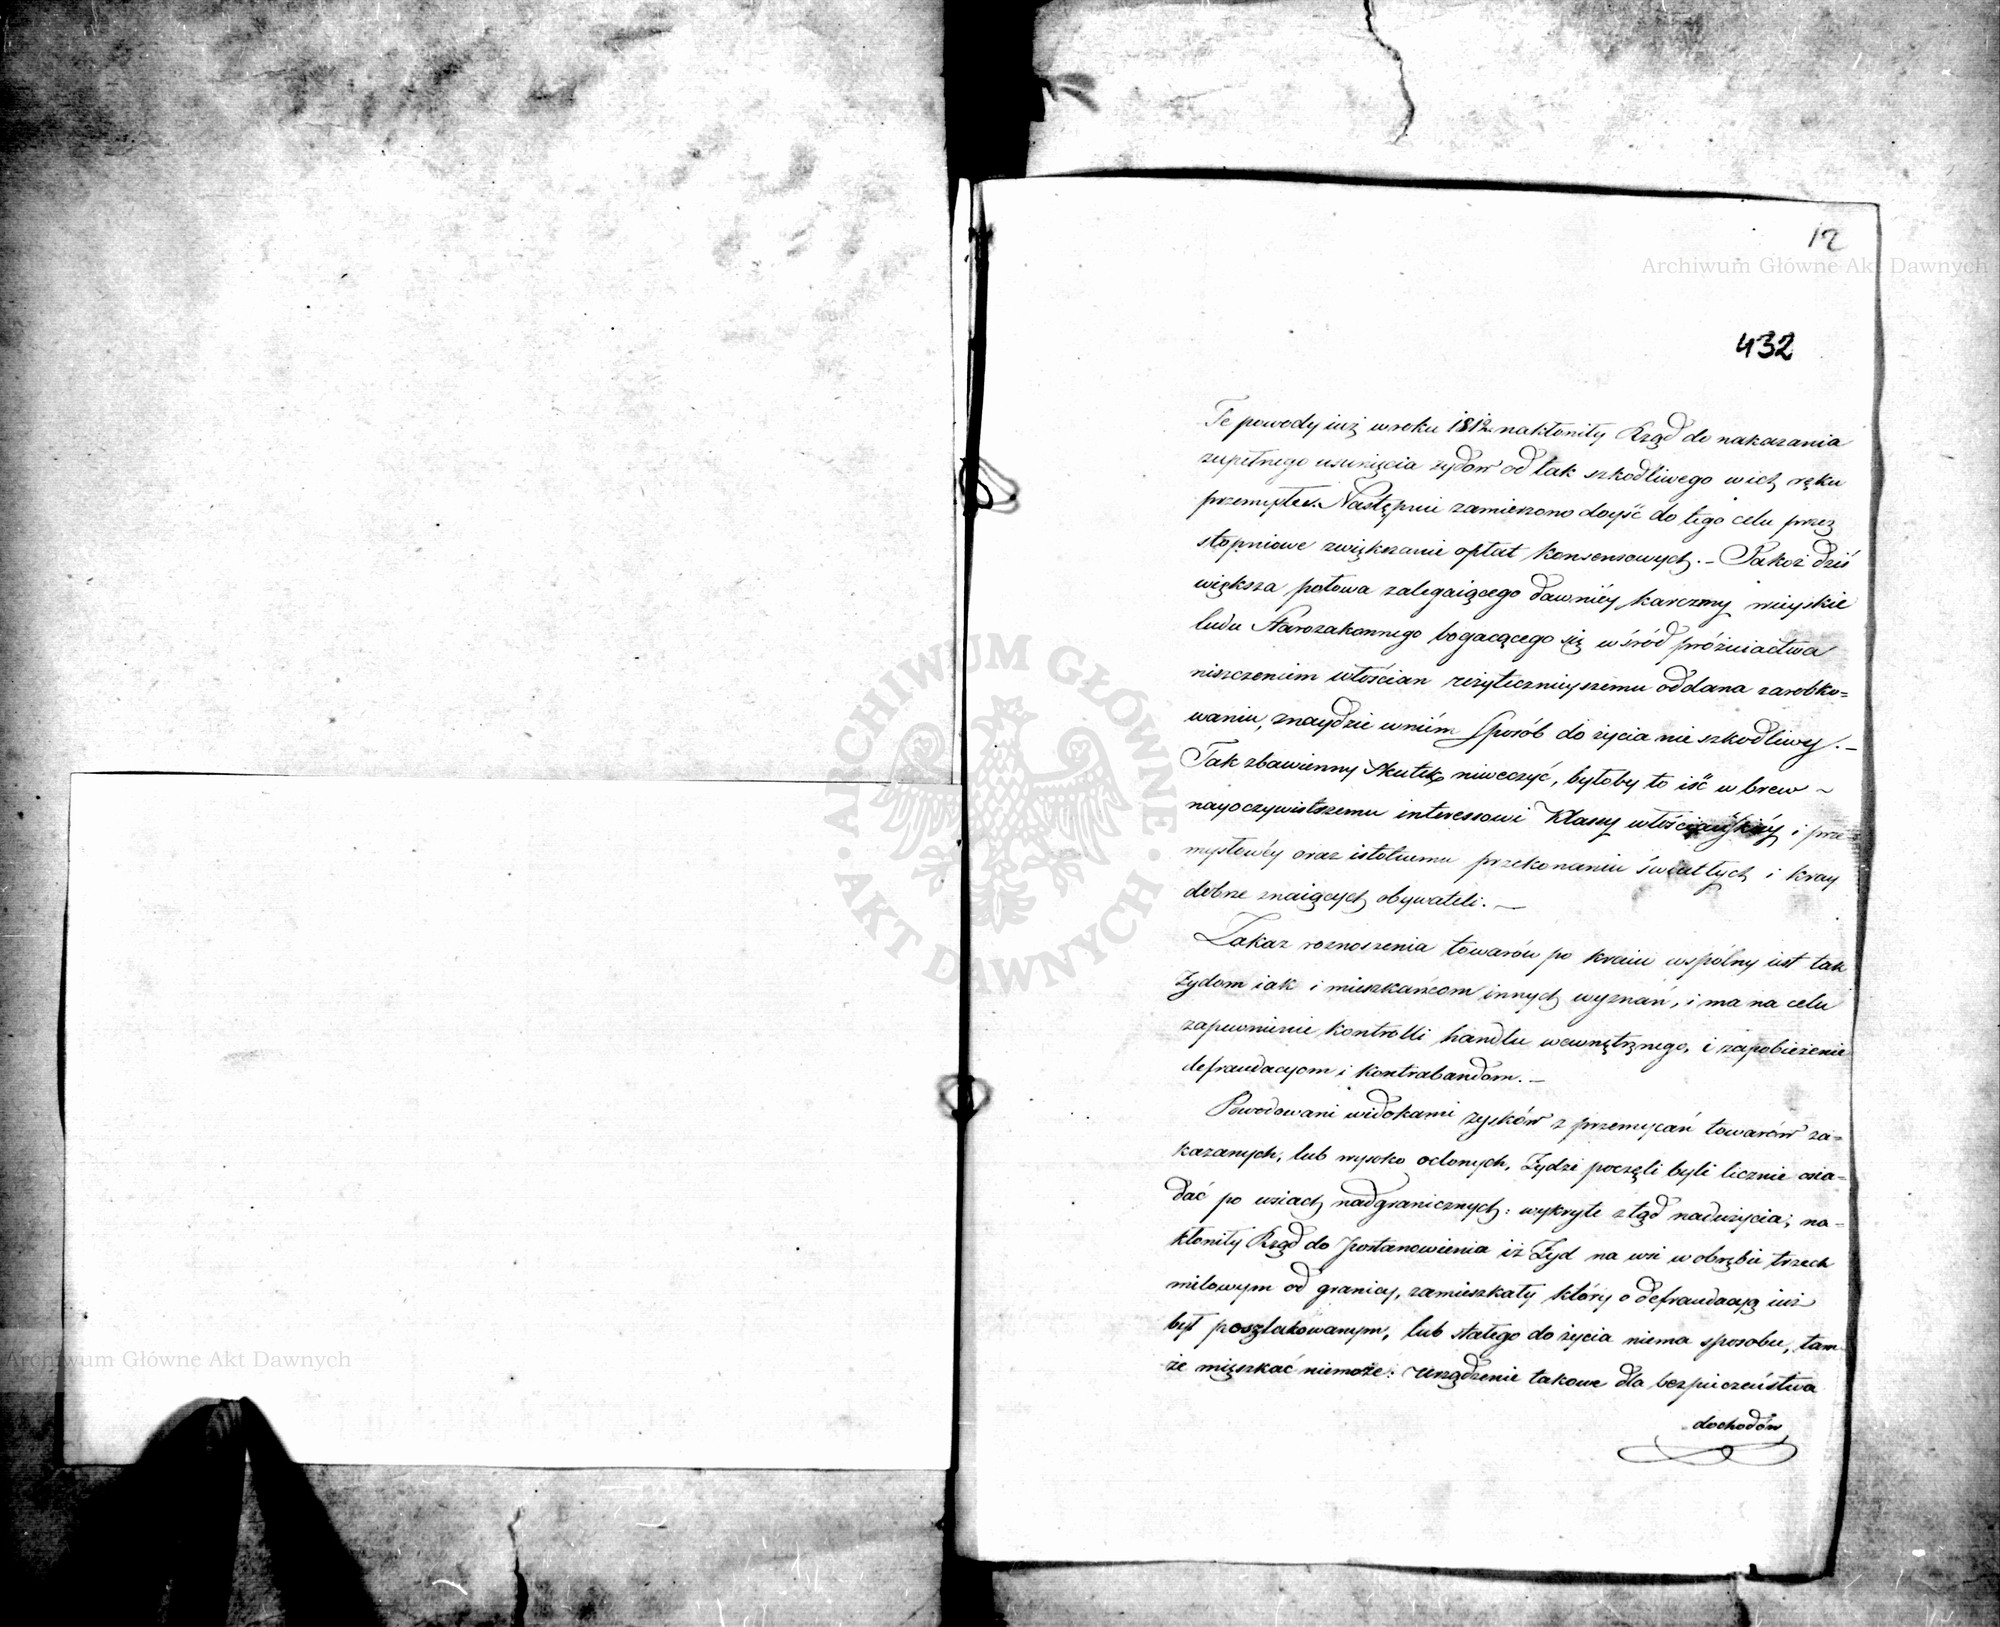 12
432
Te powody iuż w roku 1812. nakłoniły Rząd do nakazania
zupełnego usunięcia żydów od tak szkodliwego w ich ręku
przemysłu. Następnie zamierzono doyść do tego celu przez
stopniowe zwiększanie opłat konsensowych. – Jakoż dziś
większa połowa zalegaiącego dawniéy karczmy wieyskie
ludu Starozakonnego bogacącego się wśród próżniactwa
niszczeniem włościan użyteczniejszemu oddana zarobko=
waniu, znaydzie w niém sposób do życia nie szkodliwy. –
Tak zbawienny skutek niweczyć, byłoby to iść w brew ~
nayoczywistszemu interessowi Klassy włościańskiéy i prze=
mysłowéy oraz istotnemu przekonaniu światłych i kray
dobrze znaiących obywateli. –
Zakaz roznoszenia towarów po kraiu wspólny iest tak
Żydom iak i mieszkańcom innych wyznań, i ma na celu
zapewnienie kontrolli handlu wewnętrznego, i zapobieżenie
defraudacyom i kontrabandom. –
Powodowani widokami zysków z przemycań towarów za=
kazanych, lub wysoko oclonych, Żydzi poczęli byli licznie osia=
dać po wsiach nadgranicznych: wykryte ztąd nadużycia, na=
kłoniły Rząd do postanowienia iż Żyd na wsi w obrębie trzech
milowym od granicy, zamieszkały który o defraudacyą iuż
był poszlakowanym, lub stałego do życia niema sposobu, tam
że mięszkać niemoże: Urządzenie takowe dla bezpieczeństwa
dochodów
ARCHIWUM GŁÓWNE AKT DAWNYCH
Archiwum Główne Akt Dawnych
Archiwum Główne Akt Dawnych